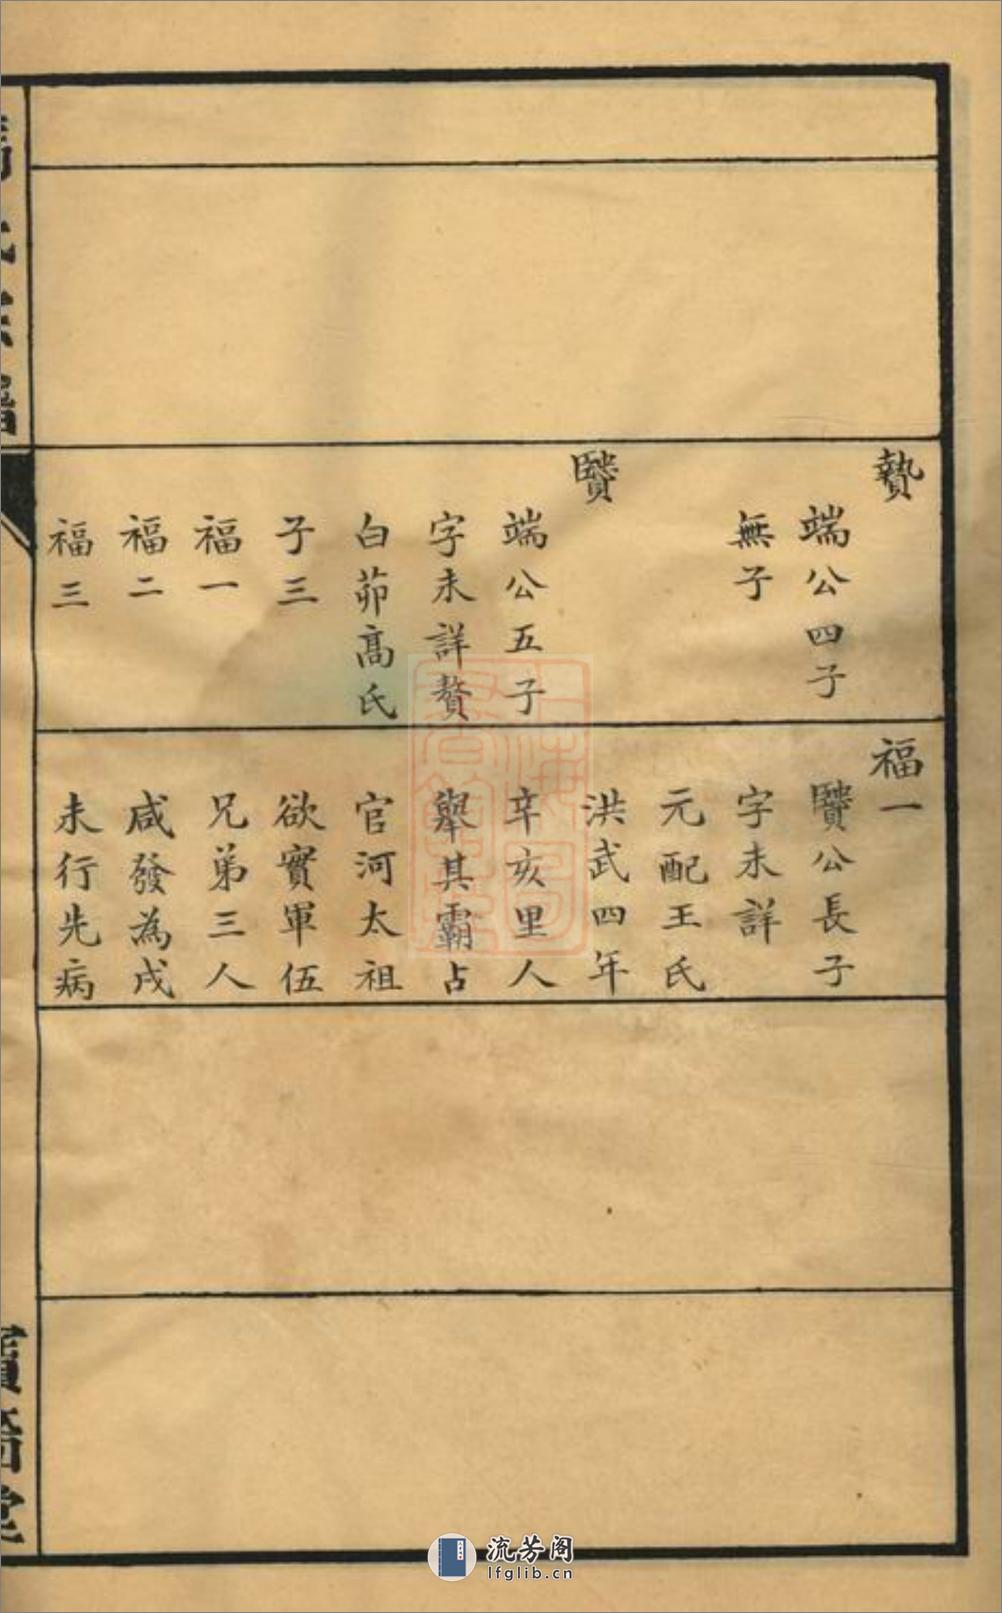 贄
端公四子
無子
贒
端公五子
字未詳贅
白茆高氏
子三
福一
福二
福三
福一
贒公長子
字未詳
元配王氏
洪武四年
辛亥里人
舉其霸占
官河太祖
欲實軍伍
兄弟三人
咸發為戍
未行先病
流芳阁
lfglib.cn